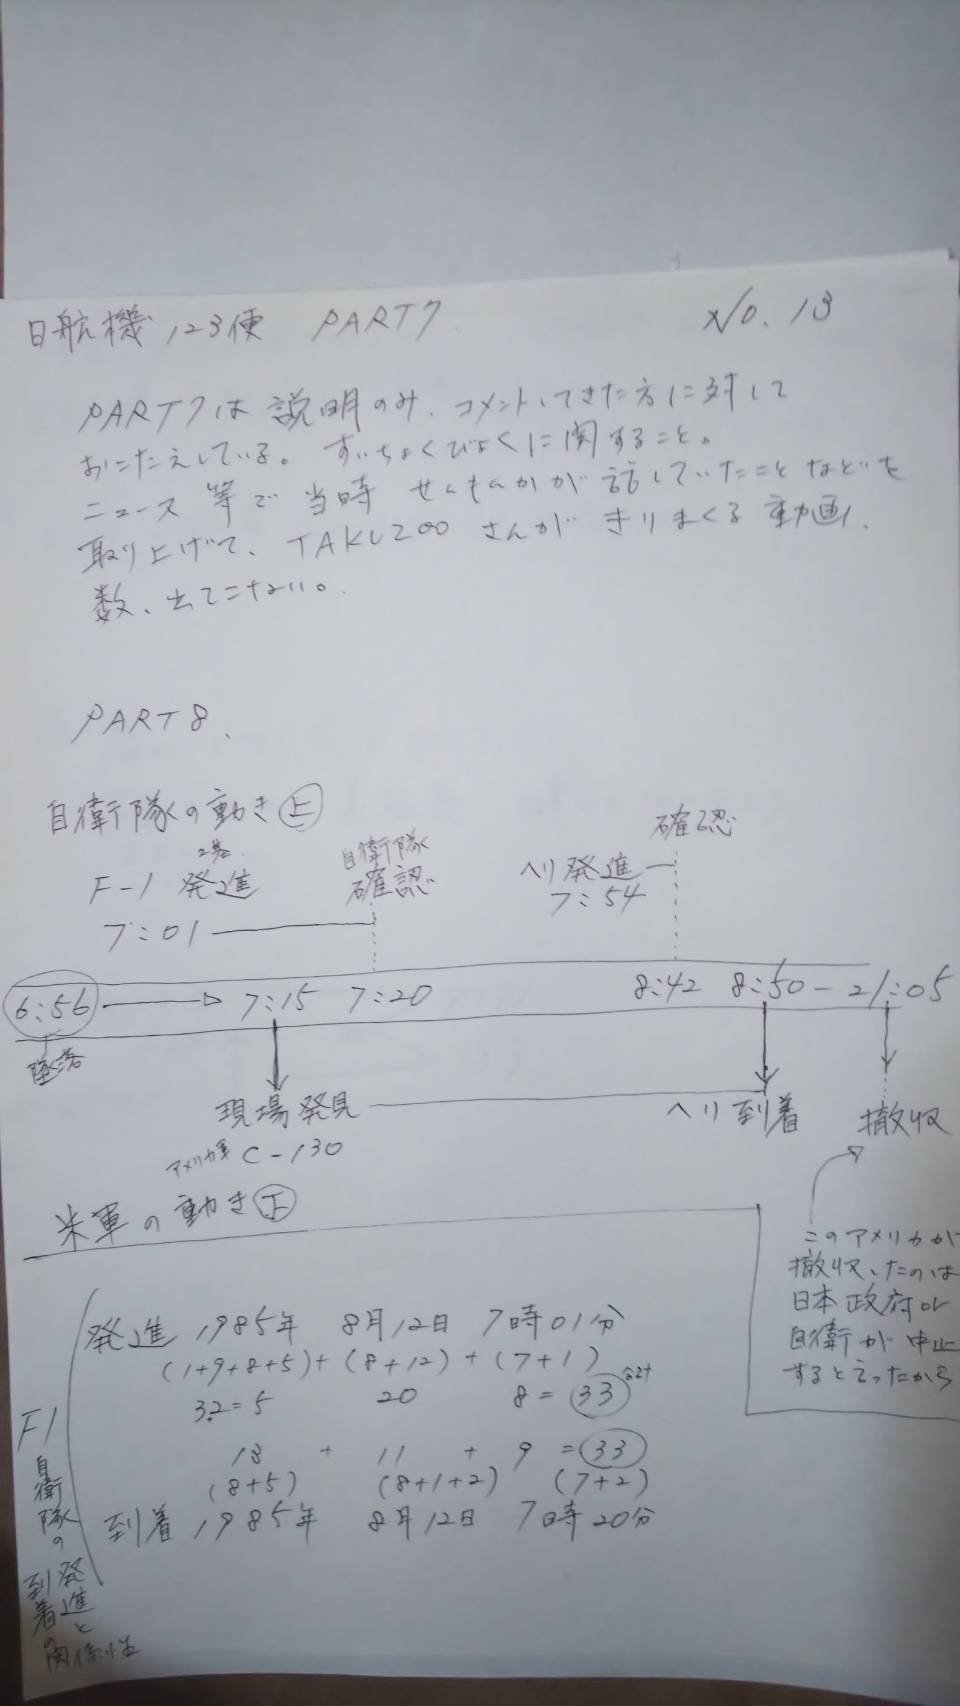 日航機123便 PART7 No.13
PART7は説明のみ、コメントしてきた方に対して
おこたえしている。すいちょくびよくに関すること。
ニュース等で当時せんもんかが話していたことなどを
取り上げて、TAKUZOOさんがきりまくる動画、
数、出てこない。
PART8、
自衛隊の動き上
F-1 発進
7:01
自衛隊
確認
ヘリ発進
7:54
確認
6:56 7:15 7:20 8:42 8:50 - 21:05
墜落
現場発見
アメリカ軍 C-130
ヘリ到着
撤収
米軍の動き下
このアメリカが
撤収したのは
日本政府or
自衛が中止
すると言ったから
発進 1985年 8月12日 7時01分
(1+9+8+5)+(8+12)+(7+1)
32=5 20 8=33 合計
13 + 11 + 9 =33
(8+5) (8+1+2) (7+2)
到着 1985年 8月12日 7時20分
F1
自衛隊の
発進と
到着の
関係性